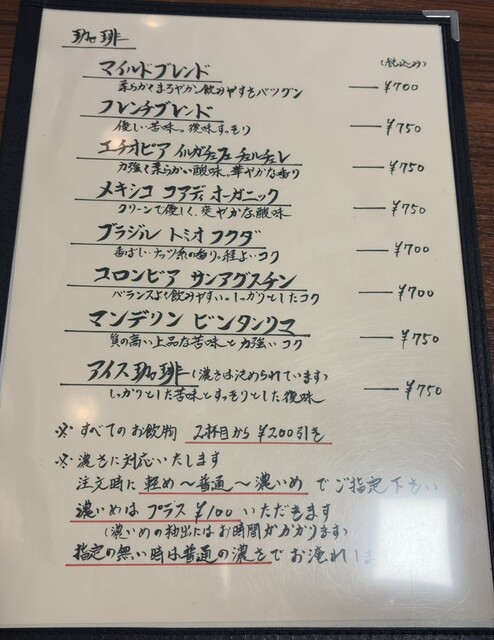 珈琲
(税込み)
マイルドブレンド ―― ¥700
柔らかくまろやか飲みやすさバツグン
フレンチブレンド ―― ¥750
優しい苦味。後味すっきり
エチオピア イルガチェフェ チェルチェレ ―― ¥750
力強く柔らかい酸味。華やかな香り
メキシコ コアディ オーガニック ―― ¥750
クリーンで優しく、爽やかな酸味
ブラジル トミオ フクダ ―― ¥700
香ばしいナッツ系の香り。程よいコク
コロンビア サンアグスチン ―― ¥700
バランスよく飲みやすい。しっかりとしたコク
マンデリン ビンタンリマ ―― ¥750
質の高い上品な苦味と力強いコク
アイス珈琲 (濃さは決められています) ―― ¥750
しっかりとした苦味とすっきりとした後味
※ すべてのお飲物 2杯目から ¥200引き
※ 濃さに対応いたします
注文時に 軽め〜普通〜濃いめ でご指定下さい
濃いめはプラス ¥100 いただきます
(濃いめの抽出にはお時間がかかります)
指定の無い時は普通の濃さでお淹れしま